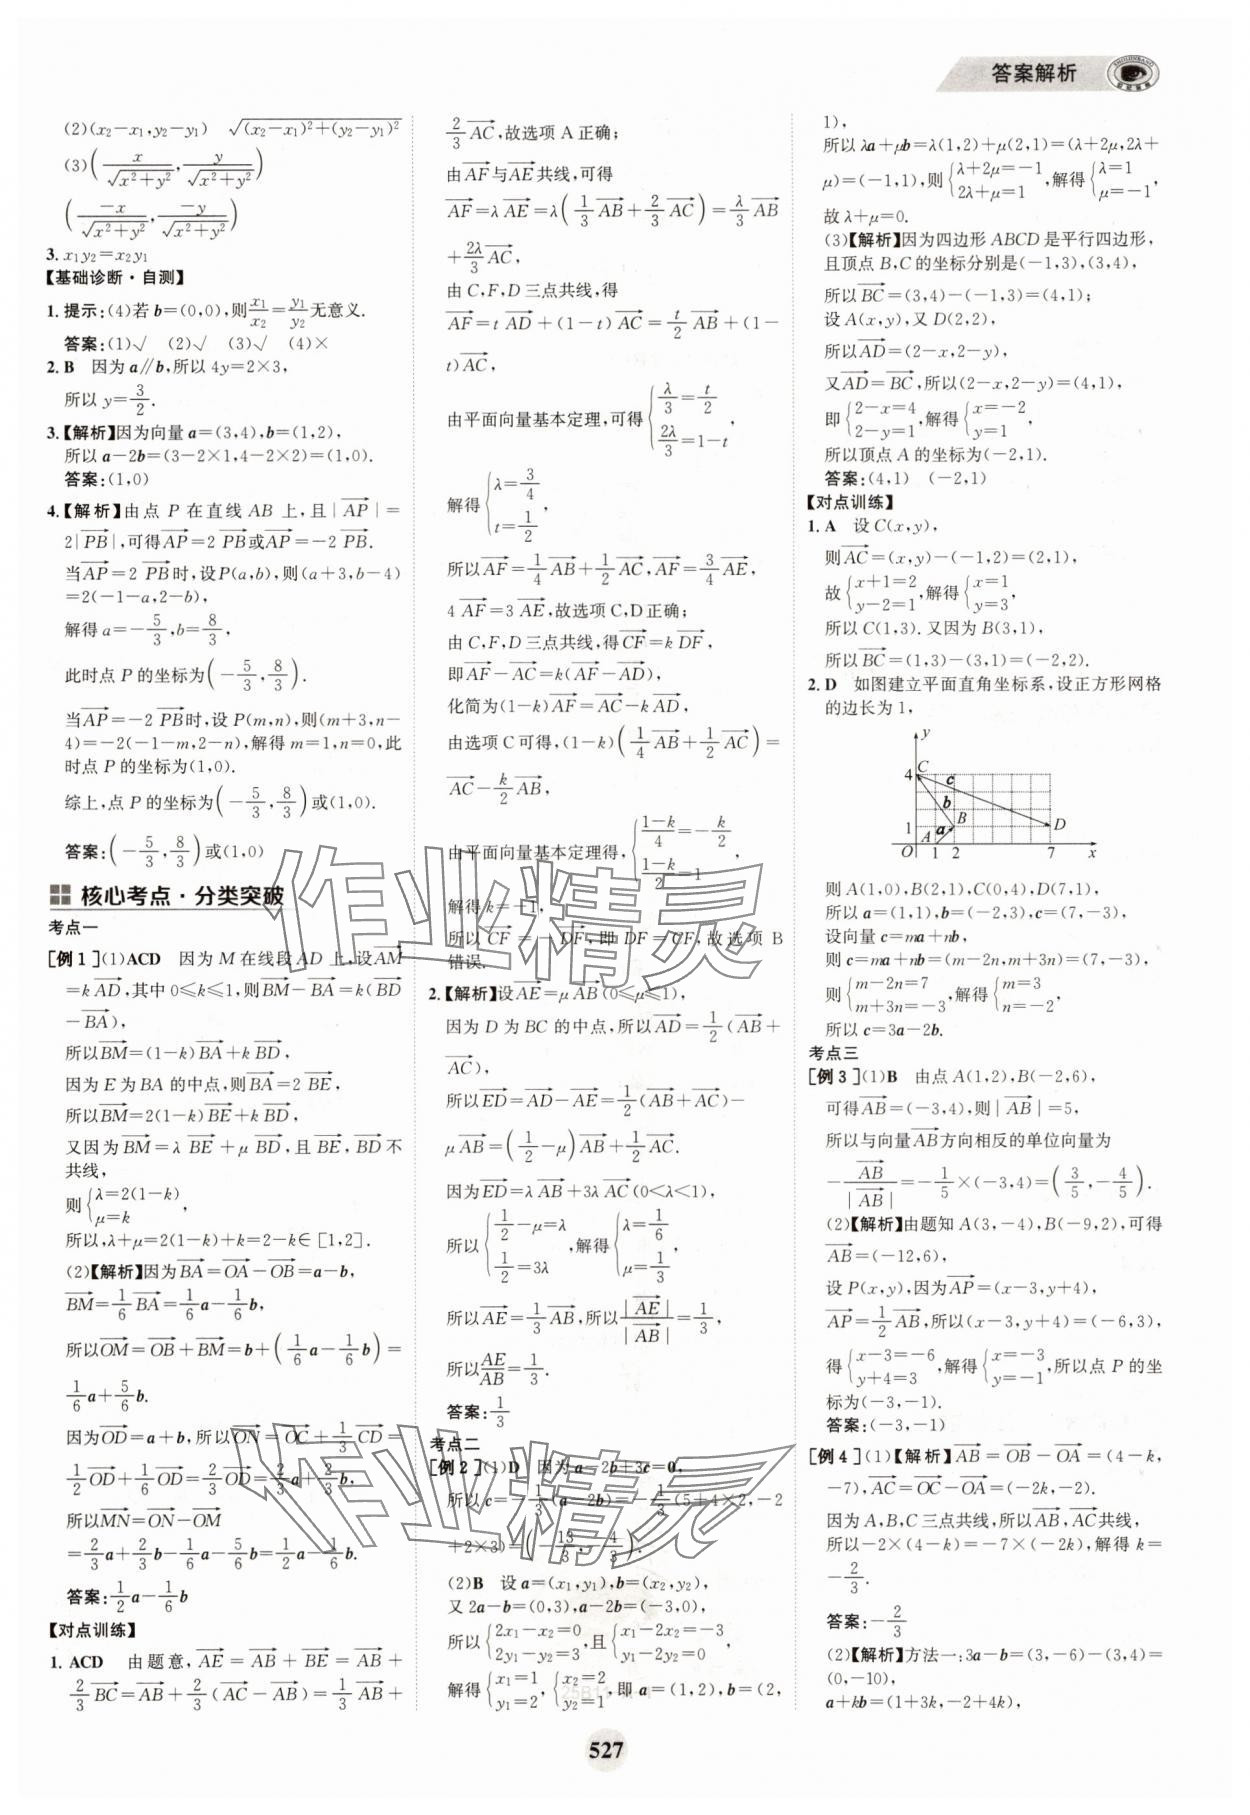 答案解析
(2)(x₂-x₁,y₂-y₁)　√((x₂-x₁)²+(y₂-y₁)²)
(3)(x/√(x²+y²),y/√(x²+y²))
(-x/√(x²+y²),-y/√(x²+y²))
3. x₁y₂=x₂y₁
【基础诊断·自测】
1. 提示:(4)若 b=(0,0),则x₁/x₂=y₁/y₂无意义.
答案:(1)√　(2)√　(3)√　(4)×
2. B　因为 a∥b,所以 4y=2×3,
所以 y=3/2.
3.【解析】因为向量 a=(3,4),b=(1,2),
所以 a-2b=(3-2×1,4-2×2)=(1,0).
答案:(1,0)
4.【解析】由点 P 在直线 AB 上,且|AP→|=
2|PB→|,可得AP→=2 PB→或AP→=-2 PB→.
当AP→=2 PB→时,设P(a,b),则(a+3,b-4)
=2(-1-a,2-b),
解得 a=-5/3,b=8/3,
此时点 P 的坐标为(-5/3,8/3).
当AP→=-2 PB→时,设 P(m,n),则(m+3,n-
4)=-2(-1-m,2-n),解得 m=1,n=0,此
时点 P 的坐标为(1,0).
综上,点 P 的坐标为(-5/3,8/3)或(1,0).
答案:(-5/3,8/3)或(1,0)
核心考点·分类突破
考点一
[例 1](1)ACD　因为 M 在线段AD 上,设AM→
=k AD→,其中 0≤k≤1,则BM→-BA→=k(BD→
-BA→),
所以BM→=(1-k)BA→+k BD→,
因为 E 为 BA 的中点,则BA→=2 BE→,
所以BM→=2(1-k)BE→+k BD→,
又因为BM→=λ BE→+μ BD→,且BE→,BD→不
共线,
则{λ=2(1-k) μ=k,
所以,λ+μ=2(1-k)+k=2-k∈[1,2].
(2)【解析】因为BA→=OA→-OB→=a-b,
BM→=1/6 BA→=1/6 a-1/6 b,
所以OM→=OB→+BM→=b+(1/6 a-1/6 b)=
1/6 a+5/6 b.
因为OD→=a+b,所以ON→=OC→+1/3 CD→=
1/2 OD→+1/6 OD→=2/3 OD→=2/3 a+2/3 b,
所以MN→=ON→-OM→
=2/3 a+2/3 b-1/6 a-5/6 b=1/2 a-1/6 b.
答案:1/2 a-1/6 b
【对点训练】
1. ACD　由题意,AE→=AB→+BE→=AB→+
2/3 BC→=AB→+2/3(AC→-AB→)=1/3 AB→+
2/3 AC→,故选项 A 正确;
由AF→与AE→共线,可得
AF→=λ AE→=λ(1/3 AB→+2/3 AC→)=λ/3 AB→
+2λ/3 AC→,
由 C,F,D 三点共线,得
AF→=t AD→+(1-t)AC→=t/2 AB→+(1-
t)AC→,
由平面向量基本定理,可得{λ/3=t/2 2λ/3=1-t,
解得{λ=3/4 t=1/2,
所以AF→=1/4 AB→+1/2 AC→,AF→=3/4 AE→,
4 AF→=3 AE→,故选项 C,D 正确;
由 C,F,D 三点共线,得CF→=k DF→,
即AF→-AC→=k(AF→-AD→),
化简为(1-k)AF→=AC→-k AD→,
由选项 C 可得,(1-k)(1/4 AB→+1/2 AC→)=
AC→-k/2 AB→,
由平面向量基本定理得,{(1-k)/4=-k/2 (1-k)/2=1,
解得 k=-1,
所以CF→=-DF→,即 DF=CF,故选项 B
错误.
2.【解析】设AE→=μ AB→(0≤μ≤1),
因为 D 为 BC 的中点,所以AD→=1/2(AB→+
AC→),
所以ED→=AD→-AE→=1/2(AB→+AC→)-
μ AB→=(1/2-μ)AB→+1/2 AC→.
因为ED→=λ AB→+3λ AC→(0<λ<1),
所以{1/2-μ=λ 1/2=3λ,解得{λ=1/6 μ=1/3,
所以AE→=1/3 AB→,所以|AE→|/|AB→|=1/3,
所以AE/AB=1/3.
答案:1/3
考点二
[例 2](1)D　因为 a-2b+3c=0,
所以 c=-1/3(a-2b)=-1/3(5+4×2,-2
+2×3)=(-13/3,-4/3).
(2)B　设 a=(x₁,y₁),b=(x₂,y₂),
又 2a-b=(0,3),a-2b=(-3,0),
所以{2x₁-x₂=0 2y₁-y₂=3,且{x₁-2x₂=-3 y₁-2y₂=0,
解得{x₁=1 y₁=2,{x₂=2 y₂=1,即 a=(1,2),b=(2,
1),
所以 λa+μb=λ(1,2)+μ(2,1)=(λ+2μ,2λ+
μ)=(-1,1),则{λ+2μ=-1 2λ+μ=1,解得{λ=1 μ=-1,
故 λ+μ=0.
(3)【解析】因为四边形 ABCD 是平行四边形,
且顶点 B,C 的坐标分别是(-1,3),(3,4),
所以BC→=(3,4)-(-1,3)=(4,1);
设 A(x,y),又 D(2,2),
所以AD→=(2-x,2-y),
又AD→=BC→,所以(2-x,2-y)=(4,1),
即{2-x=4 2-y=1,解得{x=-2 y=1,
所以顶点 A 的坐标为(-2,1).
答案:(4,1)　(-2,1)
【对点训练】
1. A　设 C(x,y),
则AC→=(x,y)-(-1,2)=(2,1),
故{x+1=2 y-2=1,解得{x=1 y=3,
所以 C(1,3). 又因为 B(3,1),
所以BC→=(1,3)-(3,1)=(-2,2).
2. D　如图建立平面直角坐标系,设正方形网格
的边长为 1,
y
4 C c
b
1 A a B D
O 1 2 7 x
则 A(1,0),B(2,1),C(0,4),D(7,1),
所以 a=(1,1),b=(-2,3),c=(7,-3),
设向量 c=ma+nb,
则 c=ma+nb=(m-2n,m+3n)=(7,-3),
则{m-2n=7 m+3n=-3,解得{m=3 n=-2,
所以 c=3a-2b.
考点三
[例 3](1)B　由点 A(1,2),B(-2,6),
可得AB→=(-3,4),则|AB→|=5,
所以与向量AB→方向相反的单位向量为
-AB→/|AB→|=-1/5×(-3,4)=(3/5,-4/5).
(2)【解析】由题知 A(3,-4),B(-9,2),可得
AB→=(-12,6),
设 P(x,y),因为AP→=(x-3,y+4),
AP→=1/2 AB→,所以(x-3,y+4)=(-6,3),
得{x-3=-6 y+4=3,解得{x=-3 y=-1,所以点 P 的坐
标为(-3,-1).
答案:(-3,-1)
[例 4](1)【解析】AB→=OB→-OA→=(4-k,
-7),AC→=OC→-OA→=(-2k,-2).
因为 A,B,C 三点共线,所以AB→,AC→共线,
所以-2×(4-k)=-7×(-2k),解得 k=
-2/3.
答案:-2/3
(2)【解析】方法一:3a-b=(3,-6)-(3,4)=
(0,-10),
a+kb=(1+3k,-2+4k),
527
作业精灵
作业精灵